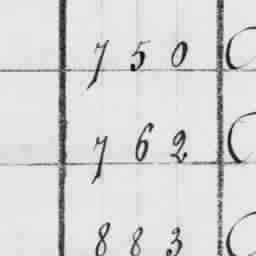 750
762
883